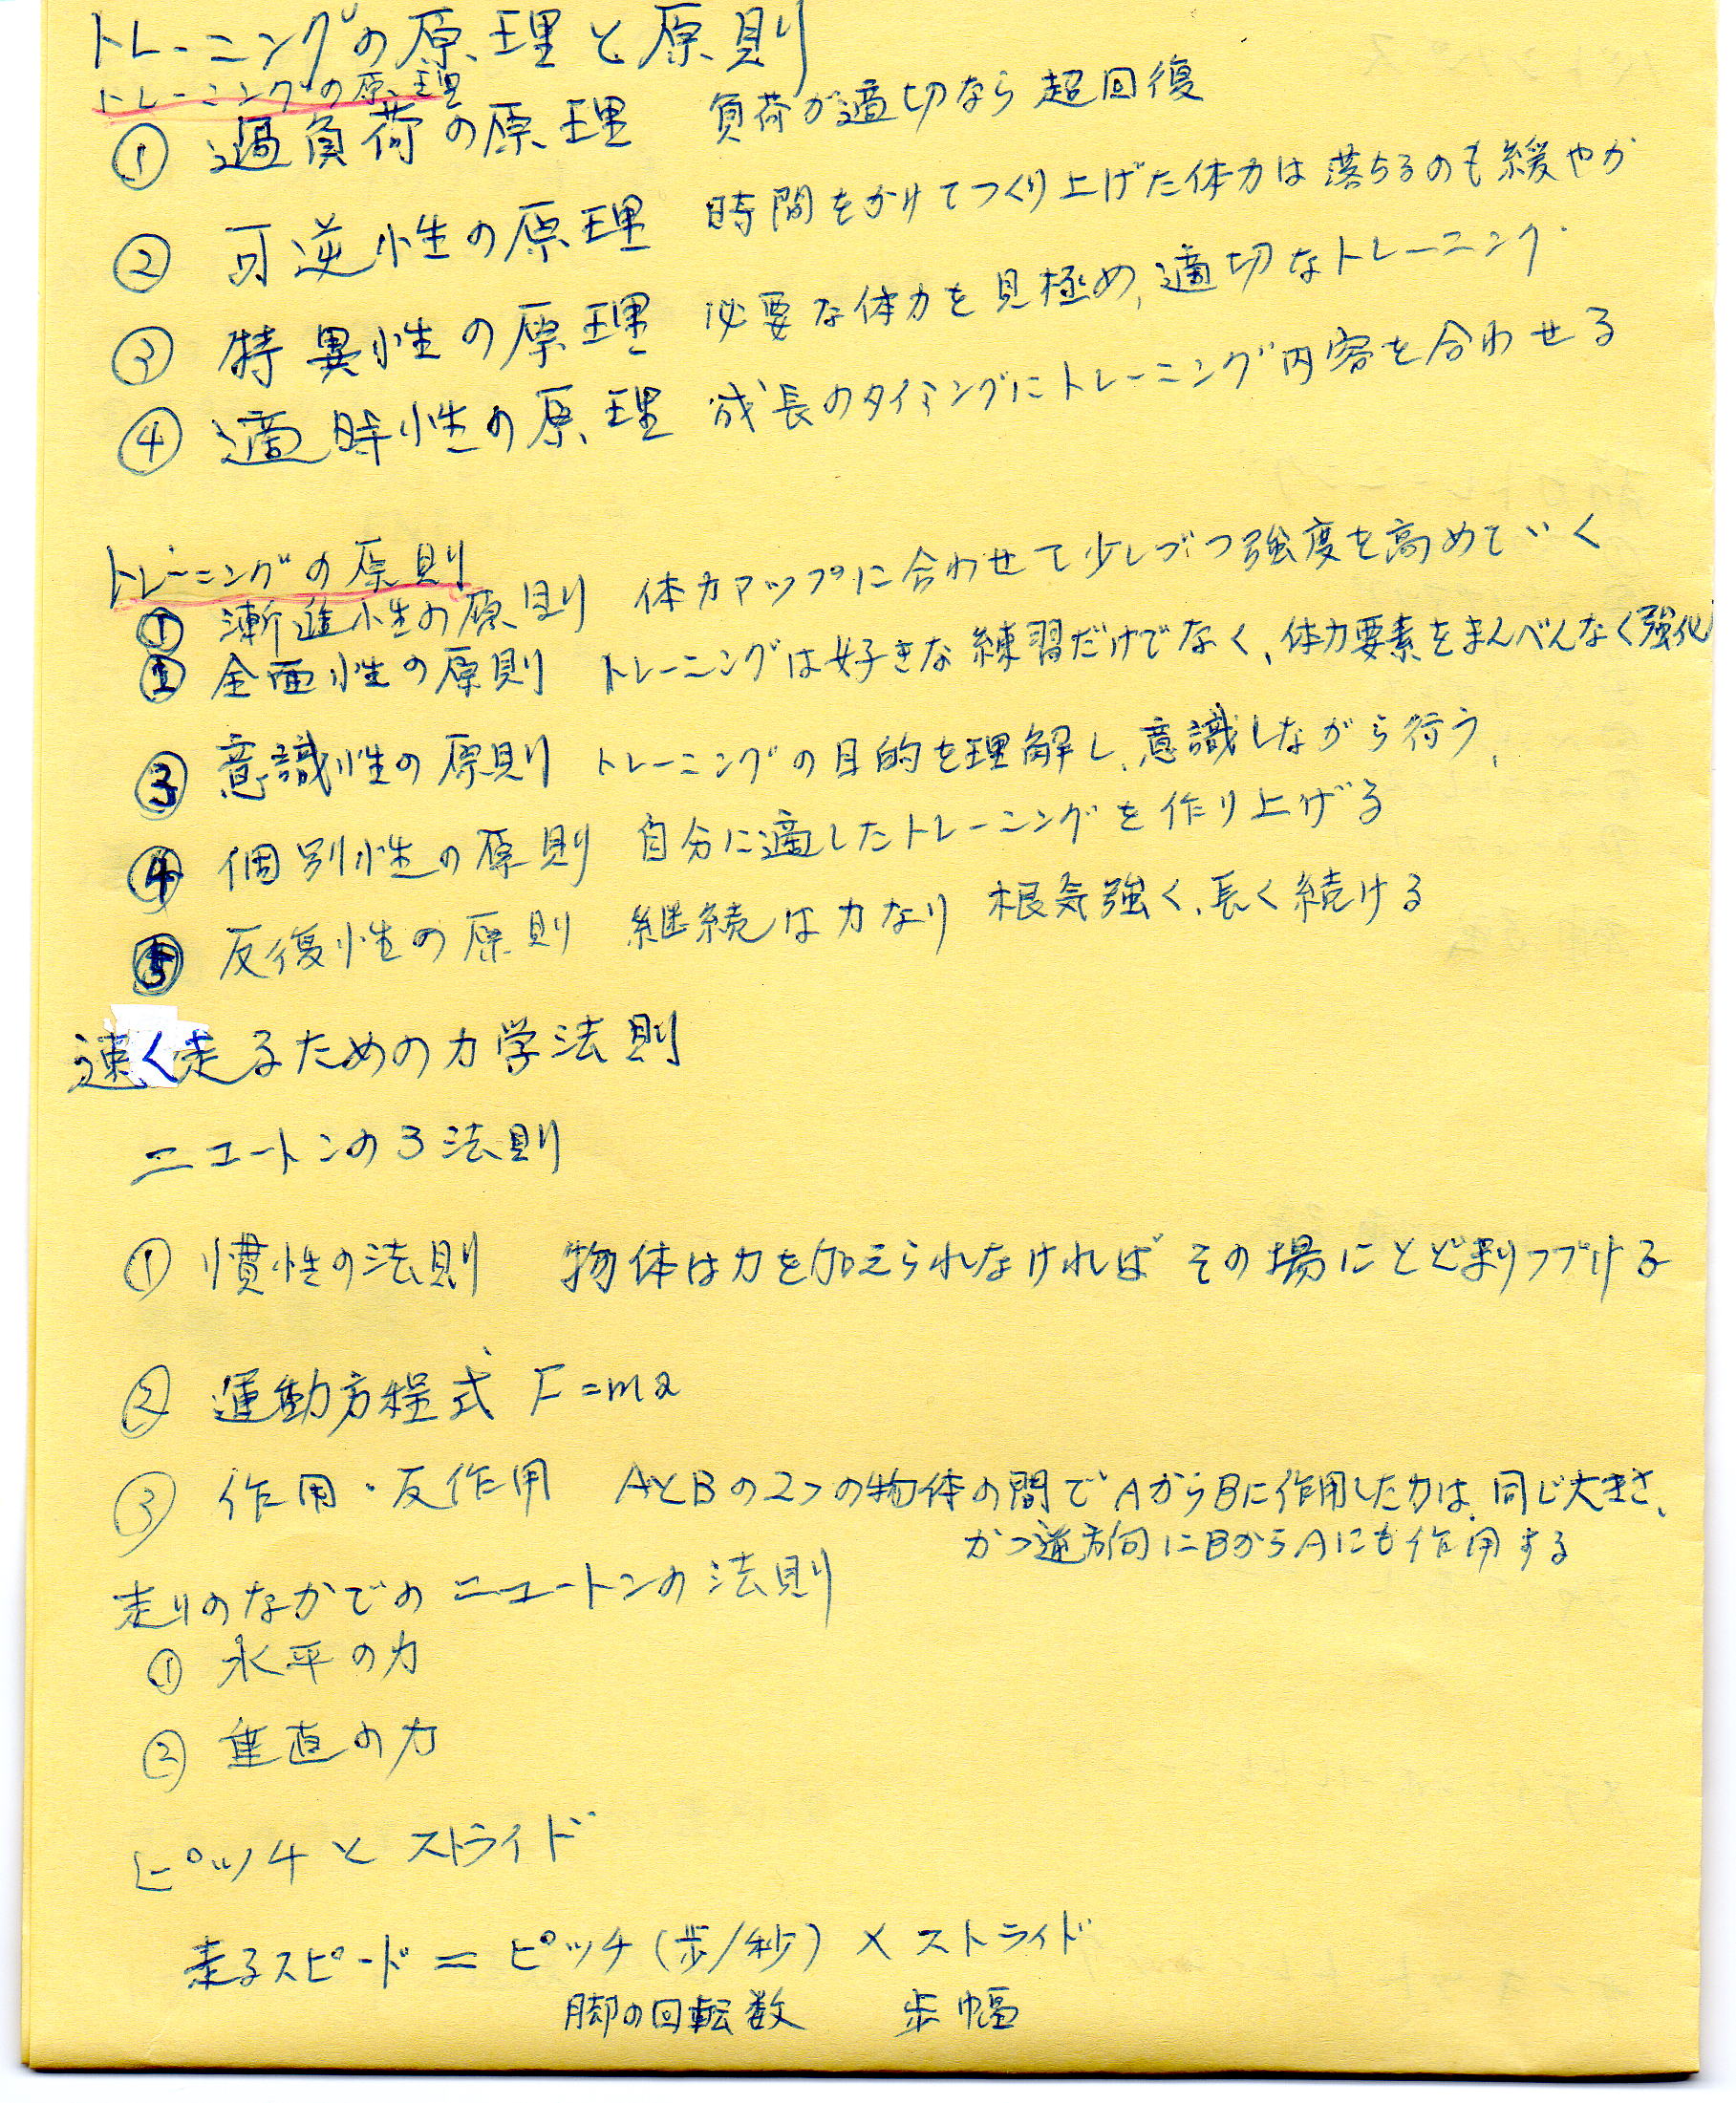 トレーニングの原理と原則
トレーニングの原理
① 過負荷の原理 負荷が適切なら超回復
② 可逆性の原理 時間をかけてつくり上げた体力は落ちるのも緩やか
③ 特異性の原理 必要な体力を見極め、適切なトレーニング
④ 適時性の原理 成長のタイミングにトレーニング内容を合わせる
トレーニングの原則
① 漸進性の原則 体力アップに合わせて少しづつ強度を高めていく
② 全面性の原則 トレーニングは好きな練習だけでなく、体力要素をまんべんなく強化
③ 意識性の原則 トレーニングの目的を理解し、意識しながら行う、
④ 個別性の原則 自分に適したトレーニングを作り上げる
⑤ 反復性の原則 継続は力なり 根気強く、長く続ける
速く走るための力学法則
ニュートンの3法則
① 慣性の法則 物体は力を加えられなければその場にとどまりつづける
② 運動方程式 F=ma
③ 作用・反作用 AとBの2つの物体の間でAからBに作用した力は、同じ大きさ、
かつ逆方向にBからAにも作用する
走りのなかでのニュートンの法則
① 水平の力
② 垂直の力
ピッチとストライド
走るスピード=ピッチ(歩/秒)×ストライド
脚の回転数 歩幅